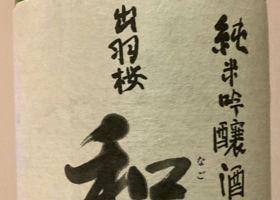 純米吟醸酒
出羽桜
和
なご